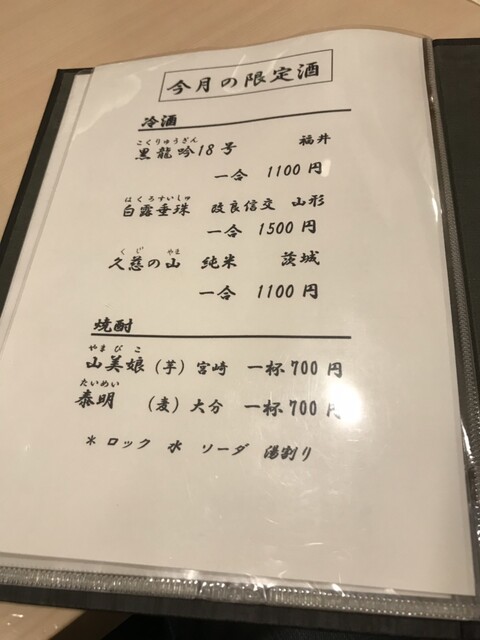 今月の限定酒
冷酒
こくりゅうぎん
黒龍吟18号 福井
一合 1100円
はくろすいしゅ
白露垂珠 改良信交 山形
一合 1500円
くじ やま
久慈の山 純米 茨城
一合 1100円
焼酎
やまびこ
山美娘(芋)宮崎 一杯700円
たいめい
泰明 (麦)大分 一杯700円
* ロック 水 ソーダ 湯割り